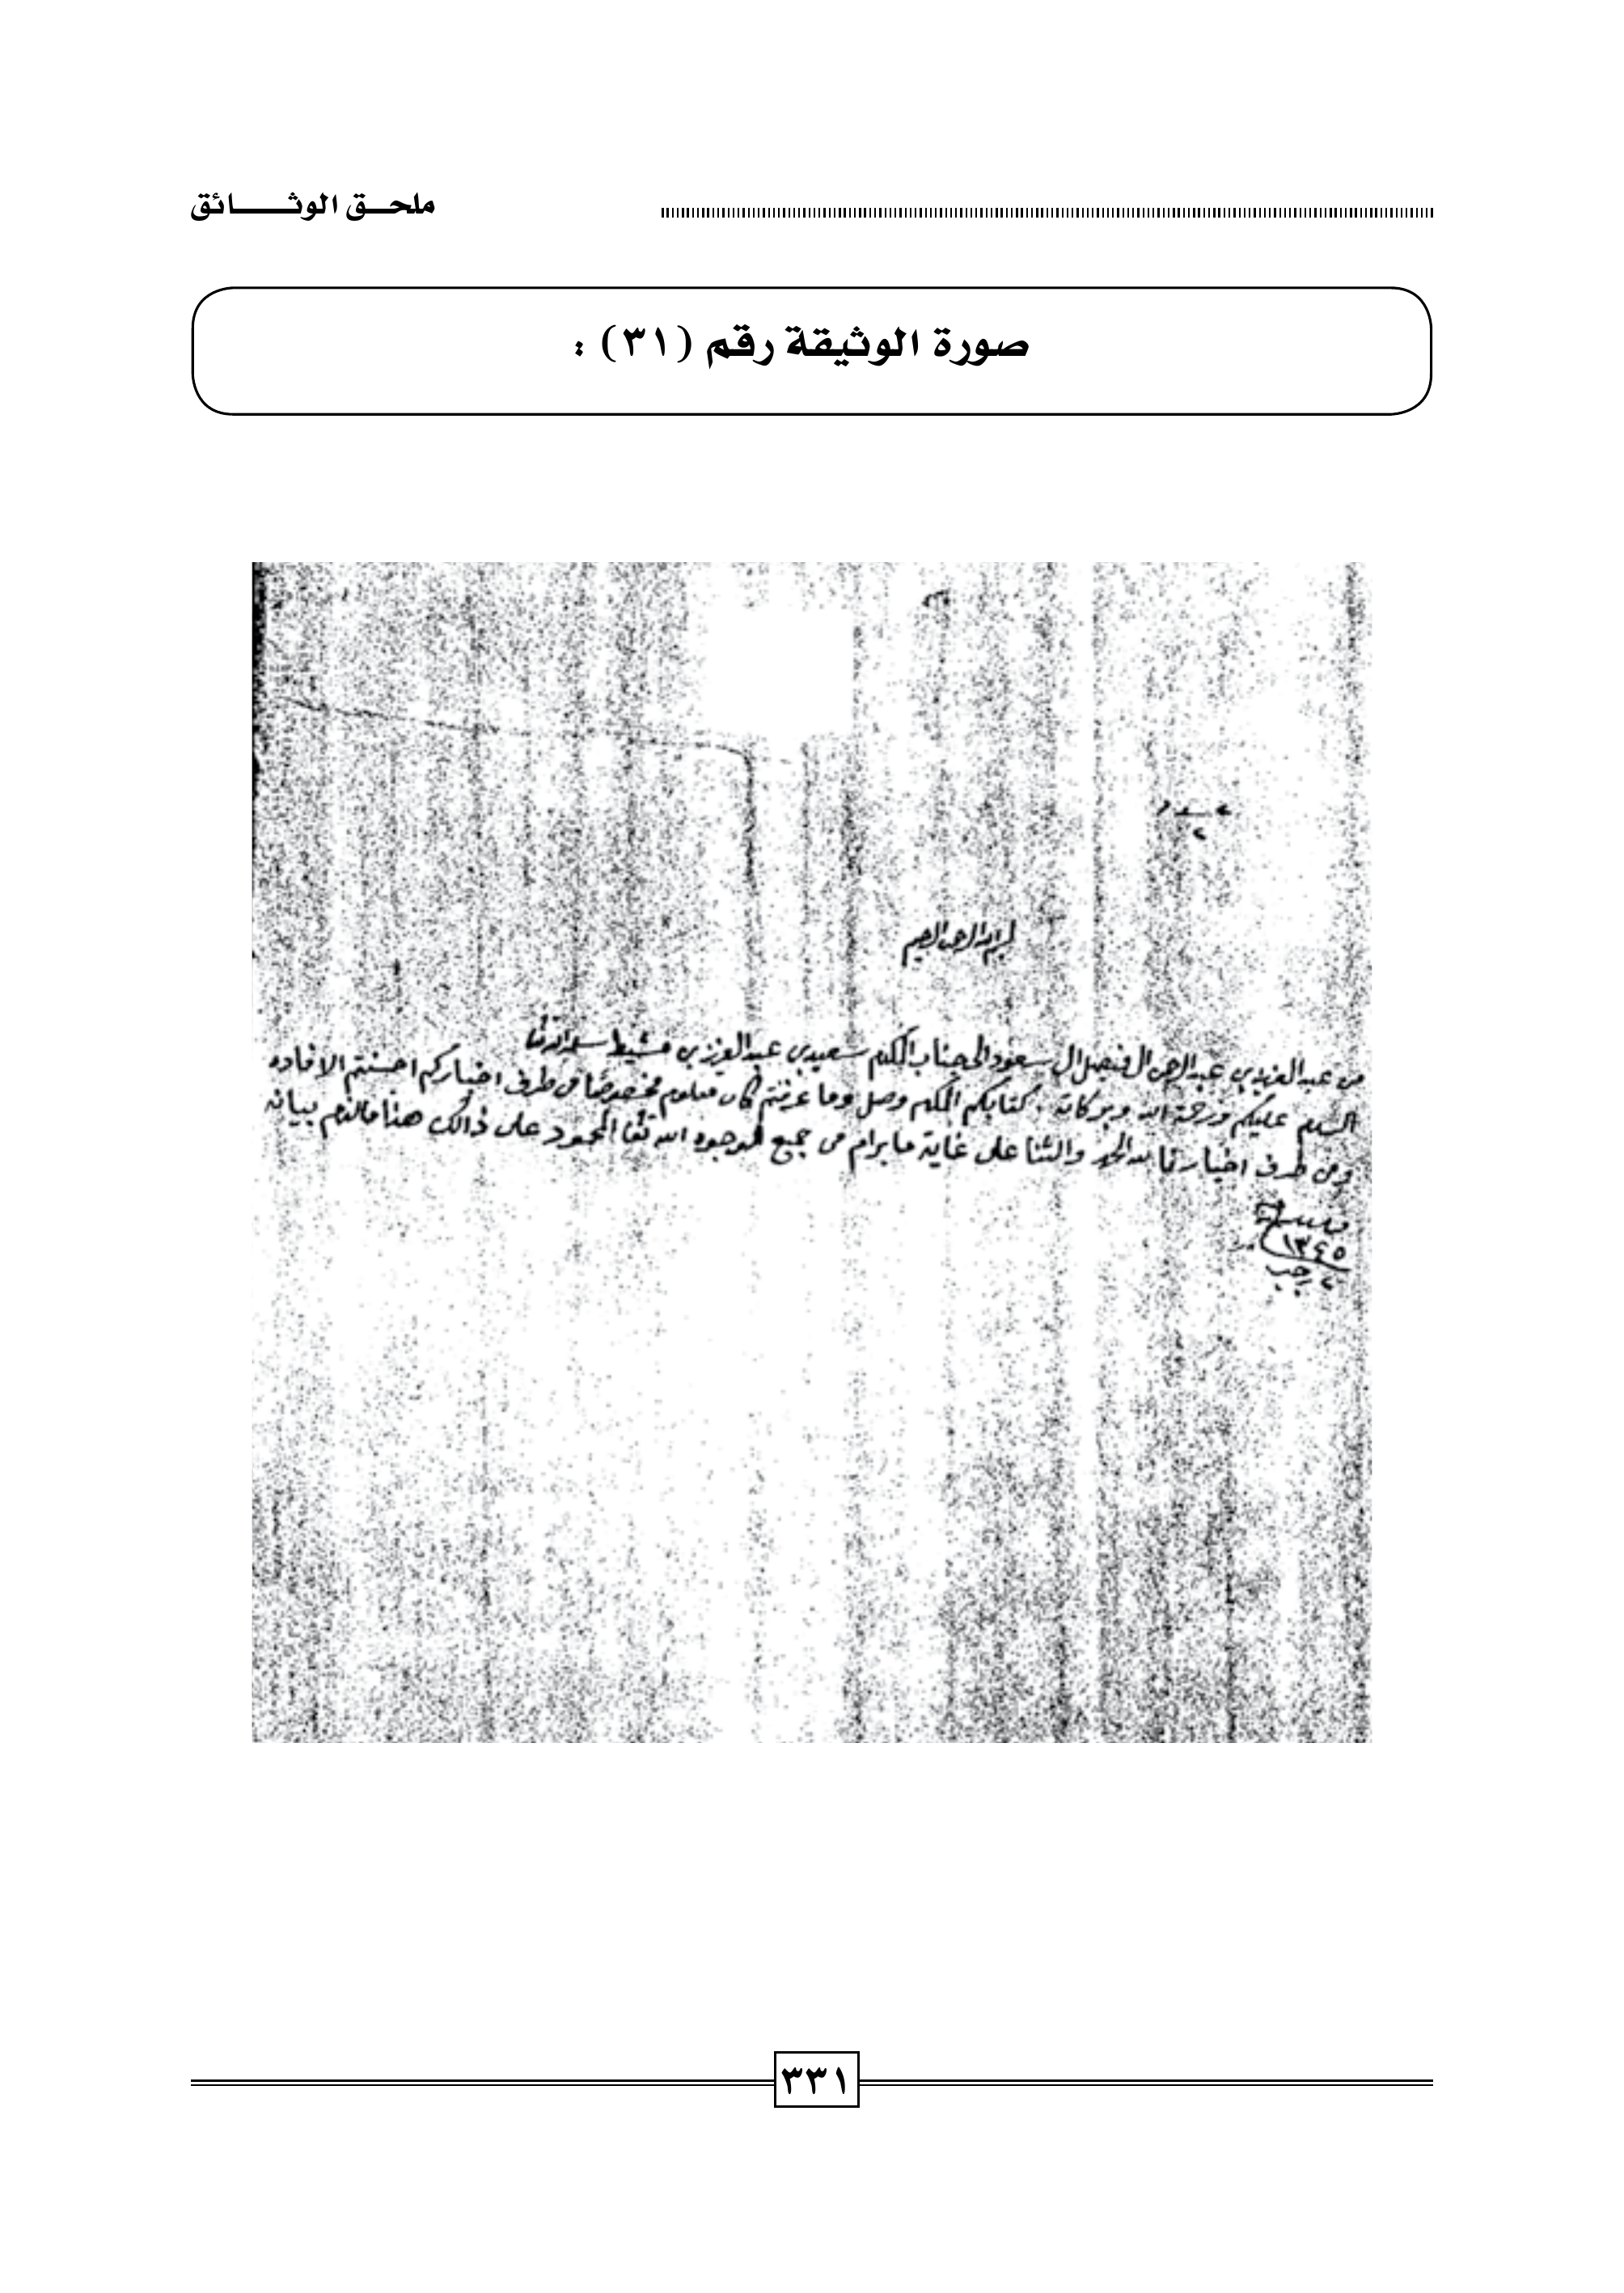 ملحق الوثائق
صورة الوثيقة رقم (٣١) :
بسم الله الرحمن الرحيم
من عبد العزيز بن عبد الرحمن ال فيصل ال سعود الى جناب المكرم سعيد بن عبد العزيز بن مشيط سلمه الله تعا
السلام عليكم ورحمة الله وبركاته . كتابكم المكرم وصل وما عرفتم كان معلوم مخصوصًا من طرف اخباركم احسنتم الافاده
ومن طرف اخبارنا لله الحمد والثنا على غاية ما يرام من جميع الوجوه الله تعا المحمود على ذالك هذا مالزم بيانه
١٣٤٥
٢ رجب
٣٣١